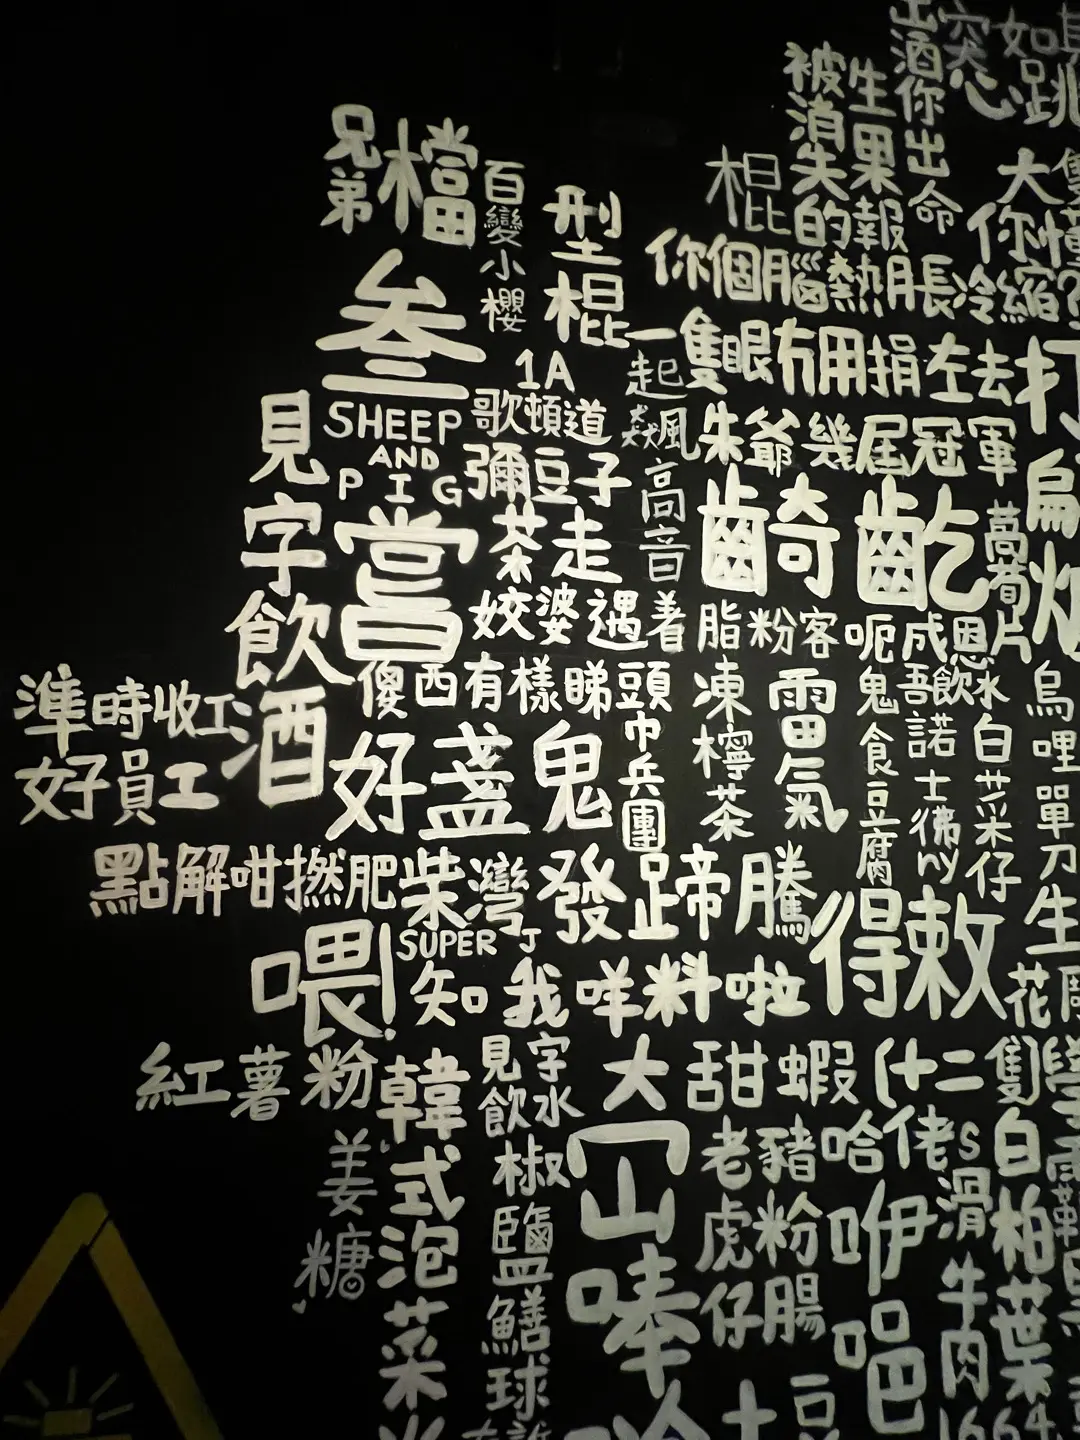 兄弟
檔
百變小櫻
型棍
棍
被消失的
生果報
出酒你出命
突心
如跳
大
你懂
冷縮?
叁
1A
你個腦熱脹
一起
隻眼冇用捐左去
打
見字飲酒
SHEEP
AND
PIG
歌頓道
彌豆子
猋飆高音
朱爺幾屆冠軍
齮齕
萵荀片
嘗
茶走
姣婆遇着脂粉客
呃鬼食豆腐
成吾諾士彿ny
恩飲水白芽菜仔
烏哩單刀
傻西有樣睇
頭巾兵團
凍檸茶
雷氣
準時收工
好員工
好盞鬼
點解咁撚肥
柴灣
發
蹄騰
得敕
生
喂!
SUPER J
知口我咩料啦
花
紅薯粉
韓式泡菜
見字飲水
大
甜蝦
十二隻
姜糖
椒鹽鱔球
老虎仔
豬粉腸
哈佬
s滑牛肉
白柏葉
咿吧
1664